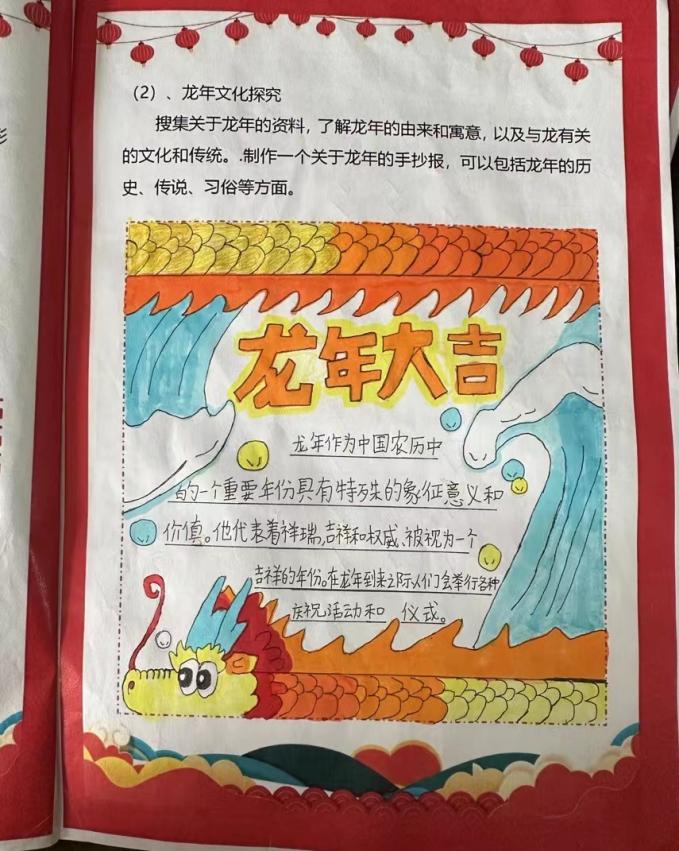 （2）、龙年文化探究
搜集关于龙年的资料，了解龙年的由来和寓意，以及与龙有关
的文化和传统。.制作一个关于龙年的手抄报，可以包括龙年的历
史、传说、习俗等方面。
龙年大吉
龙年作为中国农历中
的一个重要年份具有特殊的象征意义和
价值。他代表着祥瑞,吉祥和权威、被视为一个
吉祥的年份。在龙年到来之际、人们会举行各种
庆祝活动和 仪式。